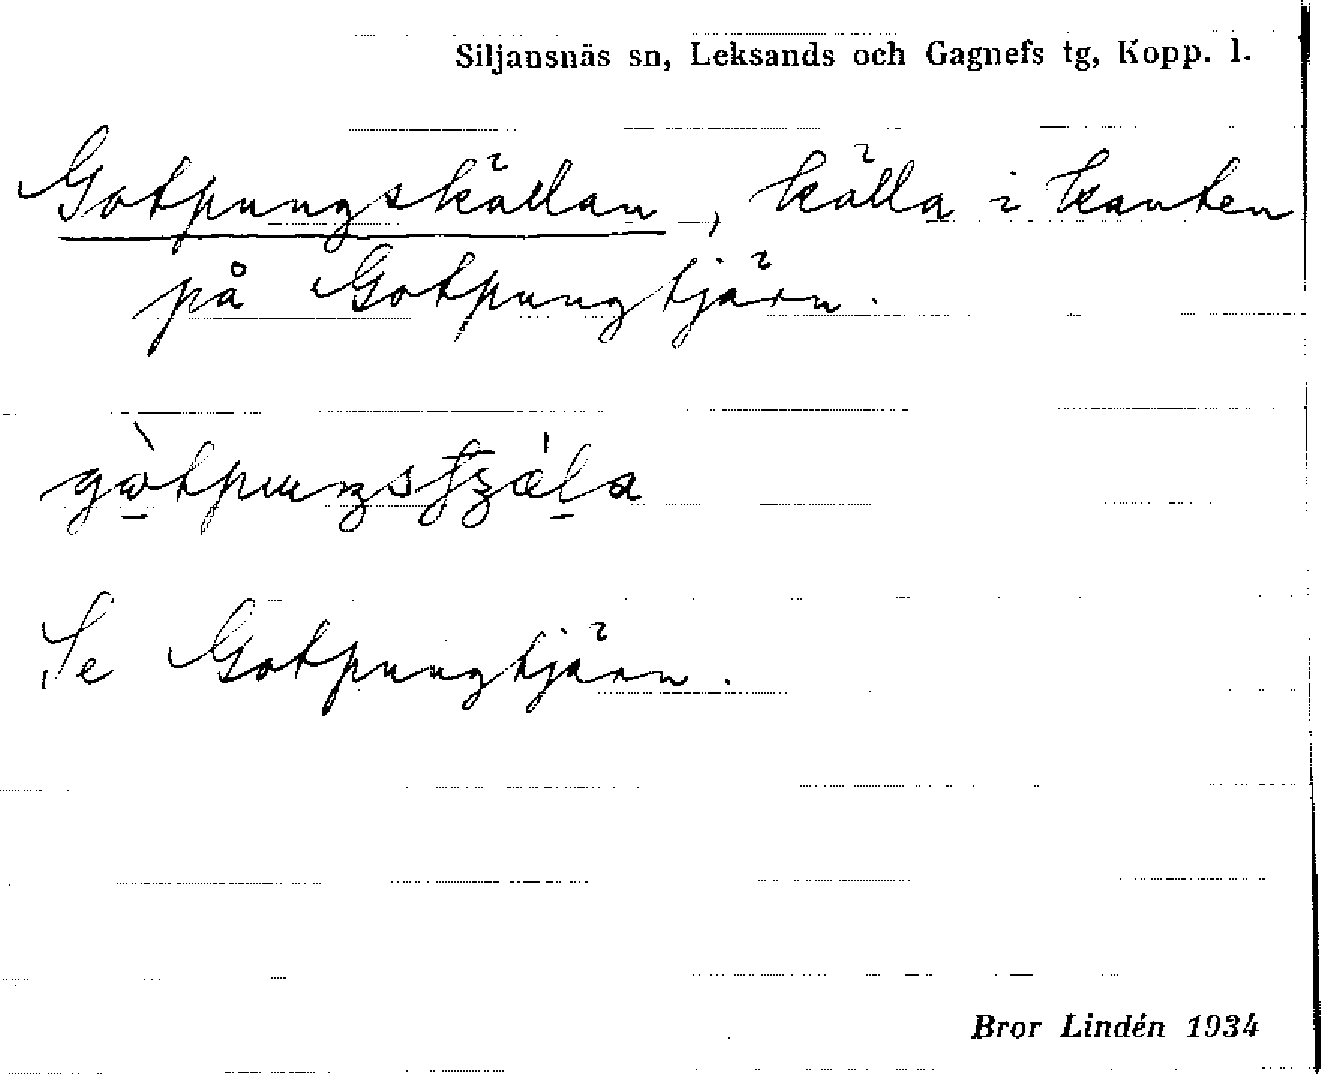 Siljansnäs sn, Leksands och Gagnefs tg, Kopp. l.
Gotpungskällan, källa i kanten
på Gotpungtjärn.
Se Gotpungtjärn.
Bror Lindén 1934